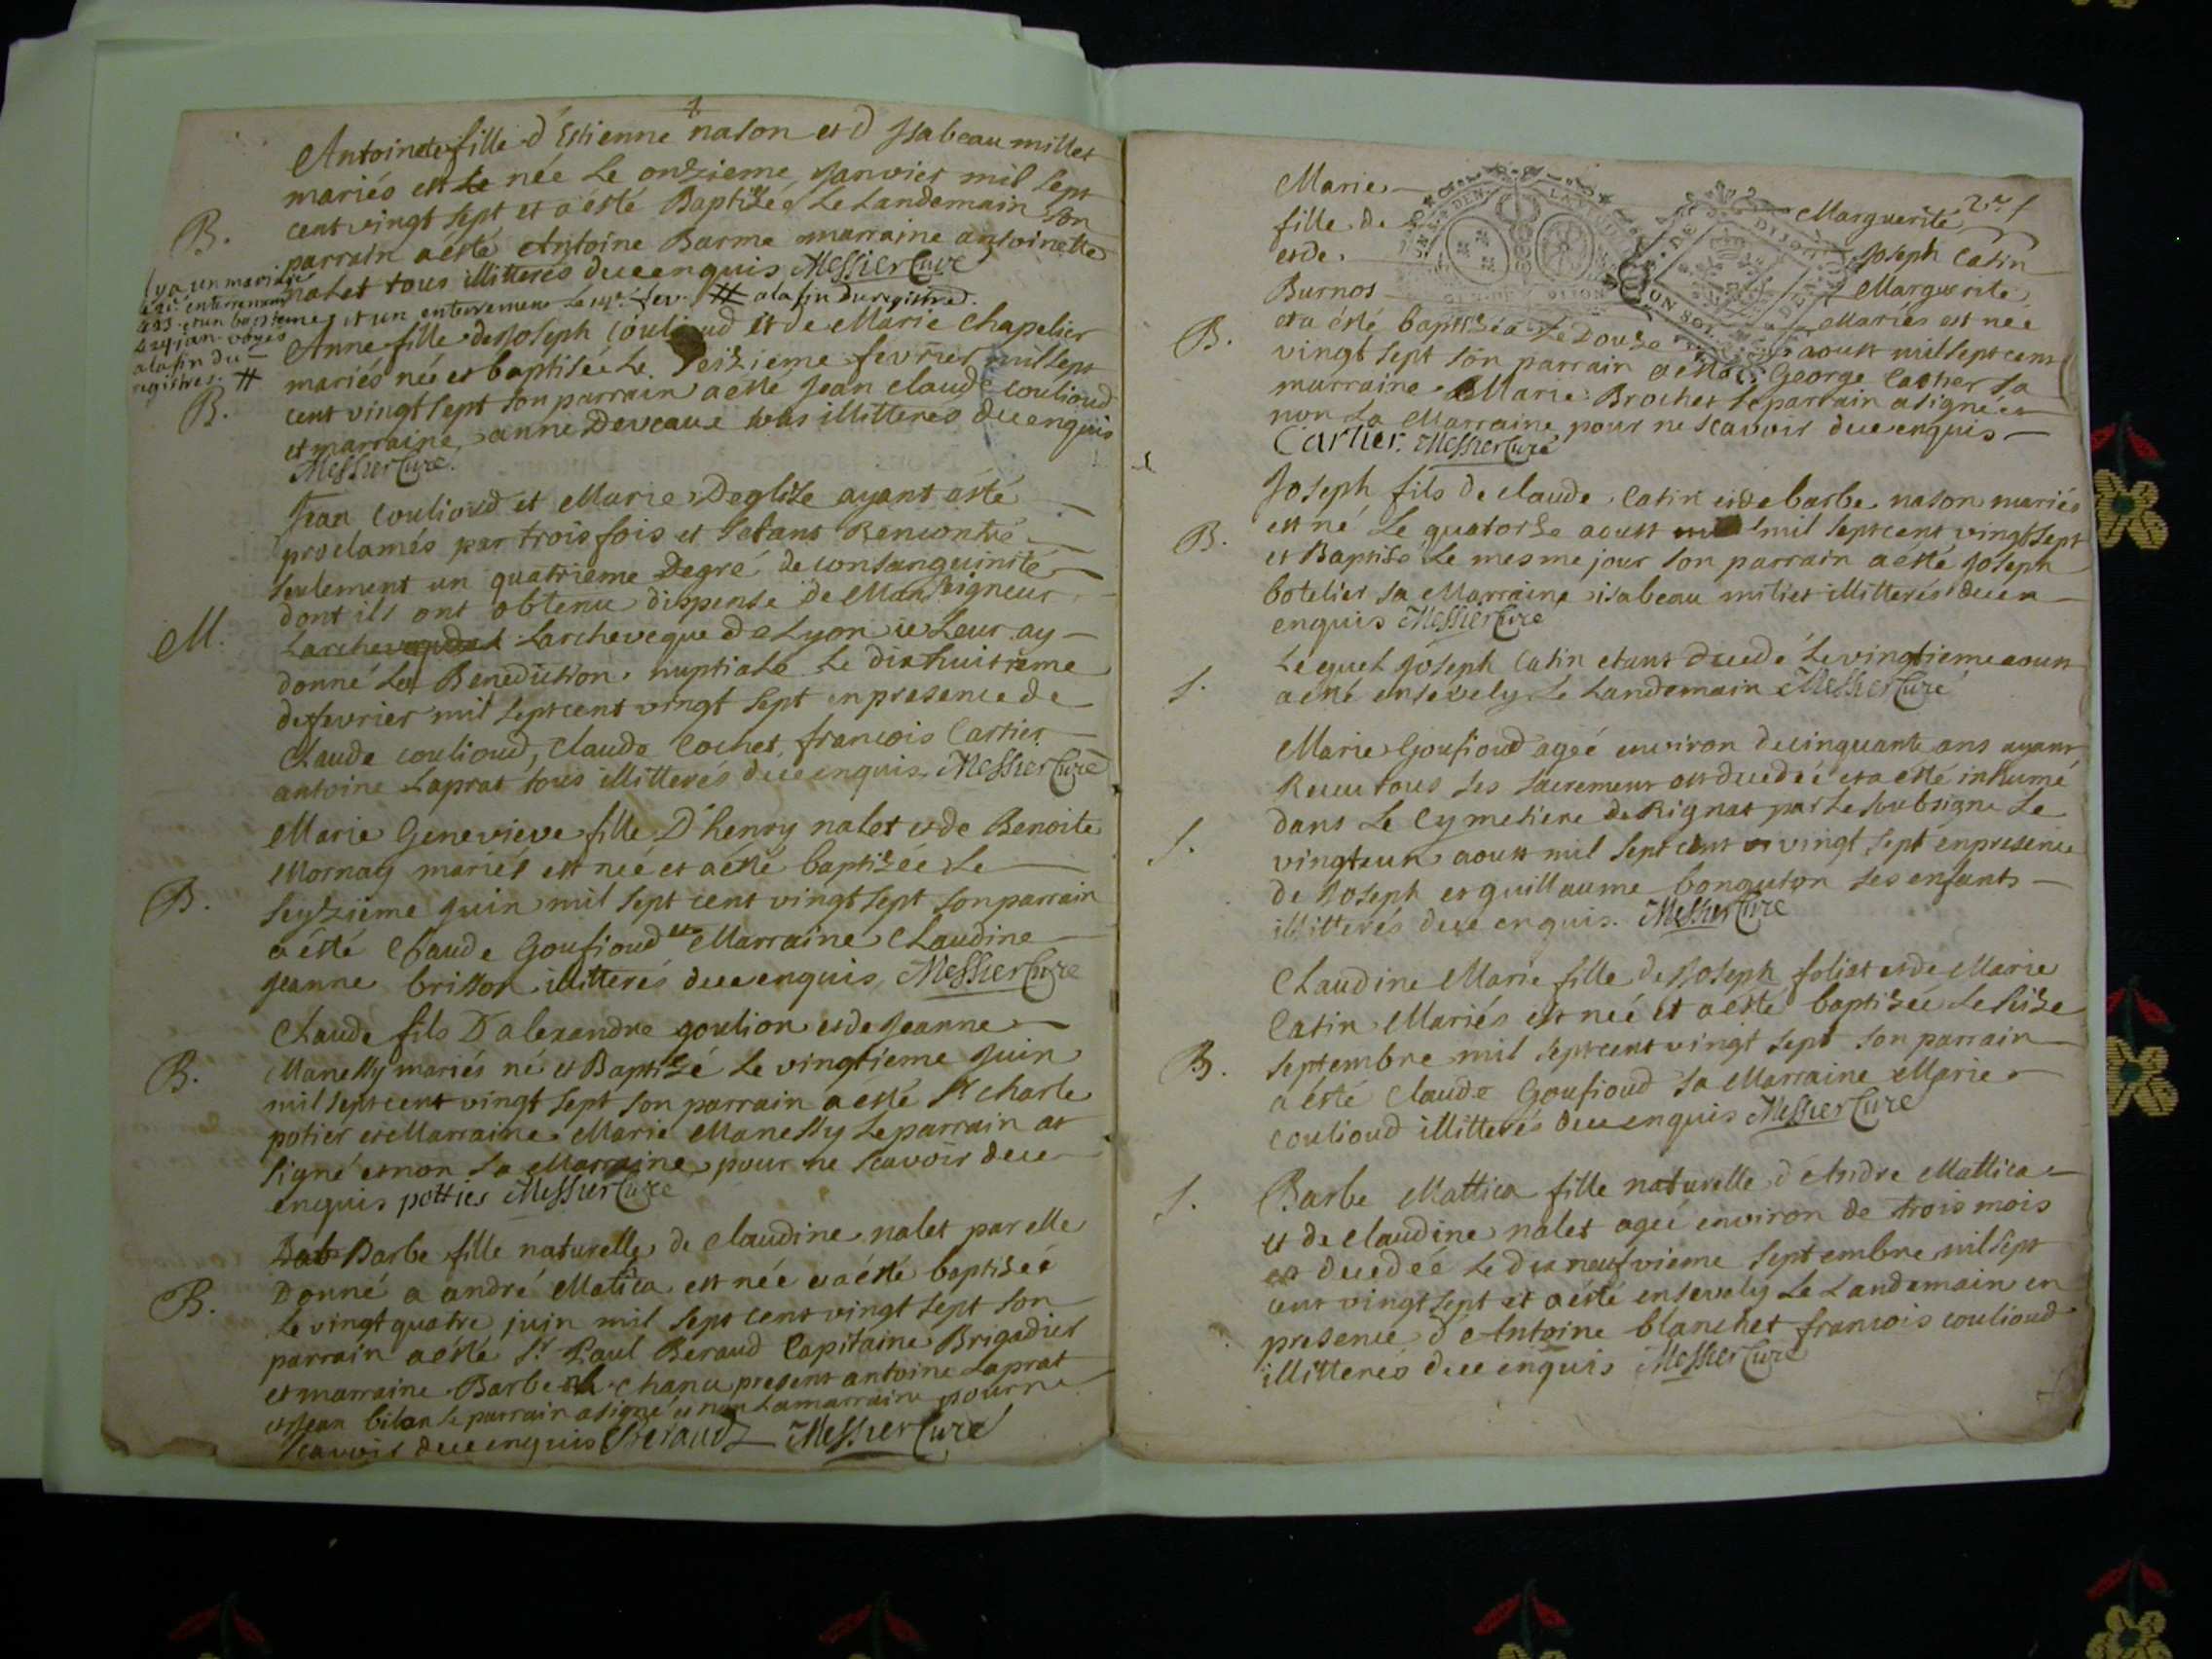 Antoinete fille d'Estienne nason et d Jsabeau millet
mariés est le née Le onzieme Janvier mil sept
cent vingt sept et a été Baptizée Le Landemain son
B.
parrain aesté Antoine Barme marraine antoinette
nalet tous illitterés dece enquis Messier Curé
il ya un mariage
et un enterrement Le
# a la fin du registre
et un
Le 29 jan. voyés
a la fin du
registres. #
Anne fille de Joseph Coulioud et de Marie Chapelier
mariés née et baptisée Le Seizieme fevrier mil sept
B.
cent vingt sept son parrain aesté Jean Claude Coulioud
et marraine anne Deveaux tous illitteres dece enquis
Messier Curé.
Jean Coulioud et Marie Deglise ayant esté
proclamés par trois fois et s'etant Rencontré
seulement un quatrieme Degré de consanguinité
dont ils ont obtenu dispense de Monseigneur
M.
Larcheveque de Lyon ie Leur ay
donné La Benediction nuptiale Le dixhuitieme
de fevrier mil sept cent vingt sept en presence de
Claude Coulioud, Claude Cochet, francois Cartier
antoine Laprat tous illitterés dece enquis Messier Curé
Marie Genevieve fille D'henry nalet et de Benoite
Mornay mariés est neé et aésté baptizée Le
B.
seyzieme Juin mil sept cent vingt sept son parrain
a ésté Claude Goufioud et Marraine Claudine
Jeanne brisson illitterés dece enquis Messier Curé
Claude fils D'alexandre goulion et de Jeanne
B.
Manessy mariés né et Baptizé Le vingtieme Juin
mil sept cent vingt sept son parrain a ésté Sr Charle
potier et Marraine Marie Manessy Le parrain at
signé et non La Marraine pour ne scavoir dece
enquis pottier Messier Curé
Bab Barbe fille naturelle de Claudine nalet par elle
B.
Donné a andré Matica est née et a ésté baptisée
Le vingt quatre juin mil sept cent vingt sept son
parrain aésté Sr Paul Beraud Capitaine Brigadier
et marraine Barbe Chanu present antoine Laprat
et Jean bilon Le parrain a signé et non La marraine pour ne
scavoir dece enquis Beraud Messier Curé
Marie Marguerite
fille de Joseph Catin
et de Marguerite
Burnos Mariés est née
B.
et a ésté baptisée Le Douze aoust mil sept cent
vingt sept son parrain a esté George Cartier sa
marraine Marie Brochet Le parrain a signé et
non La Marraine pour ne scavoir dece enquis
Cartier. Messier Curé
Joseph fils de Claude Catin et de barbe nason mariés
B.
est né Le quatorze aoust mil sept cent vingt sept
et Baptisé Le mesme jour son parrain a ésté Joseph
botelier sa Marraine isabeau miliet illitterés dece
enquis Messier Curé
Lequel Joseph Catin etant decedé Le vingtieme aoust
S.
a ésté ensevely Le Landemain Messier Curé
Marie Goufioud ageé environ de cinquante ans ayant
Receu tous ses sacremens est decedeé et a ésté inhumé
dans Le Cymetiere de Rignat par Le soubsigné Le
S.
vingt un aoust mil sept cent vingt sept en presence
de Joseph et guillaume ses enfants
illitterés dece enquis. Messier Curé
Claudine Marie fille de Joseph foliat et de Marie
Catin Mariés est neé et a esté baptisée Le seize
B.
septembre mil sept cent vingt sept son parrain
a ésté Claude Goufioud sa Marraine Marie
Coulioud illitterés dece enquis Messier Curé
S.
Barbe Mattica fille naturelle d'Andre Mattica
et de Claudine nalet ageé environ de trois mois
est decedeé Le dix neufvieme septembre mil sept
cent vingt sept et a ésté ensevely Le Landemain en
presence d'Antoine blanchet francois Coulioud
illitterés dece enquis Messier Curé